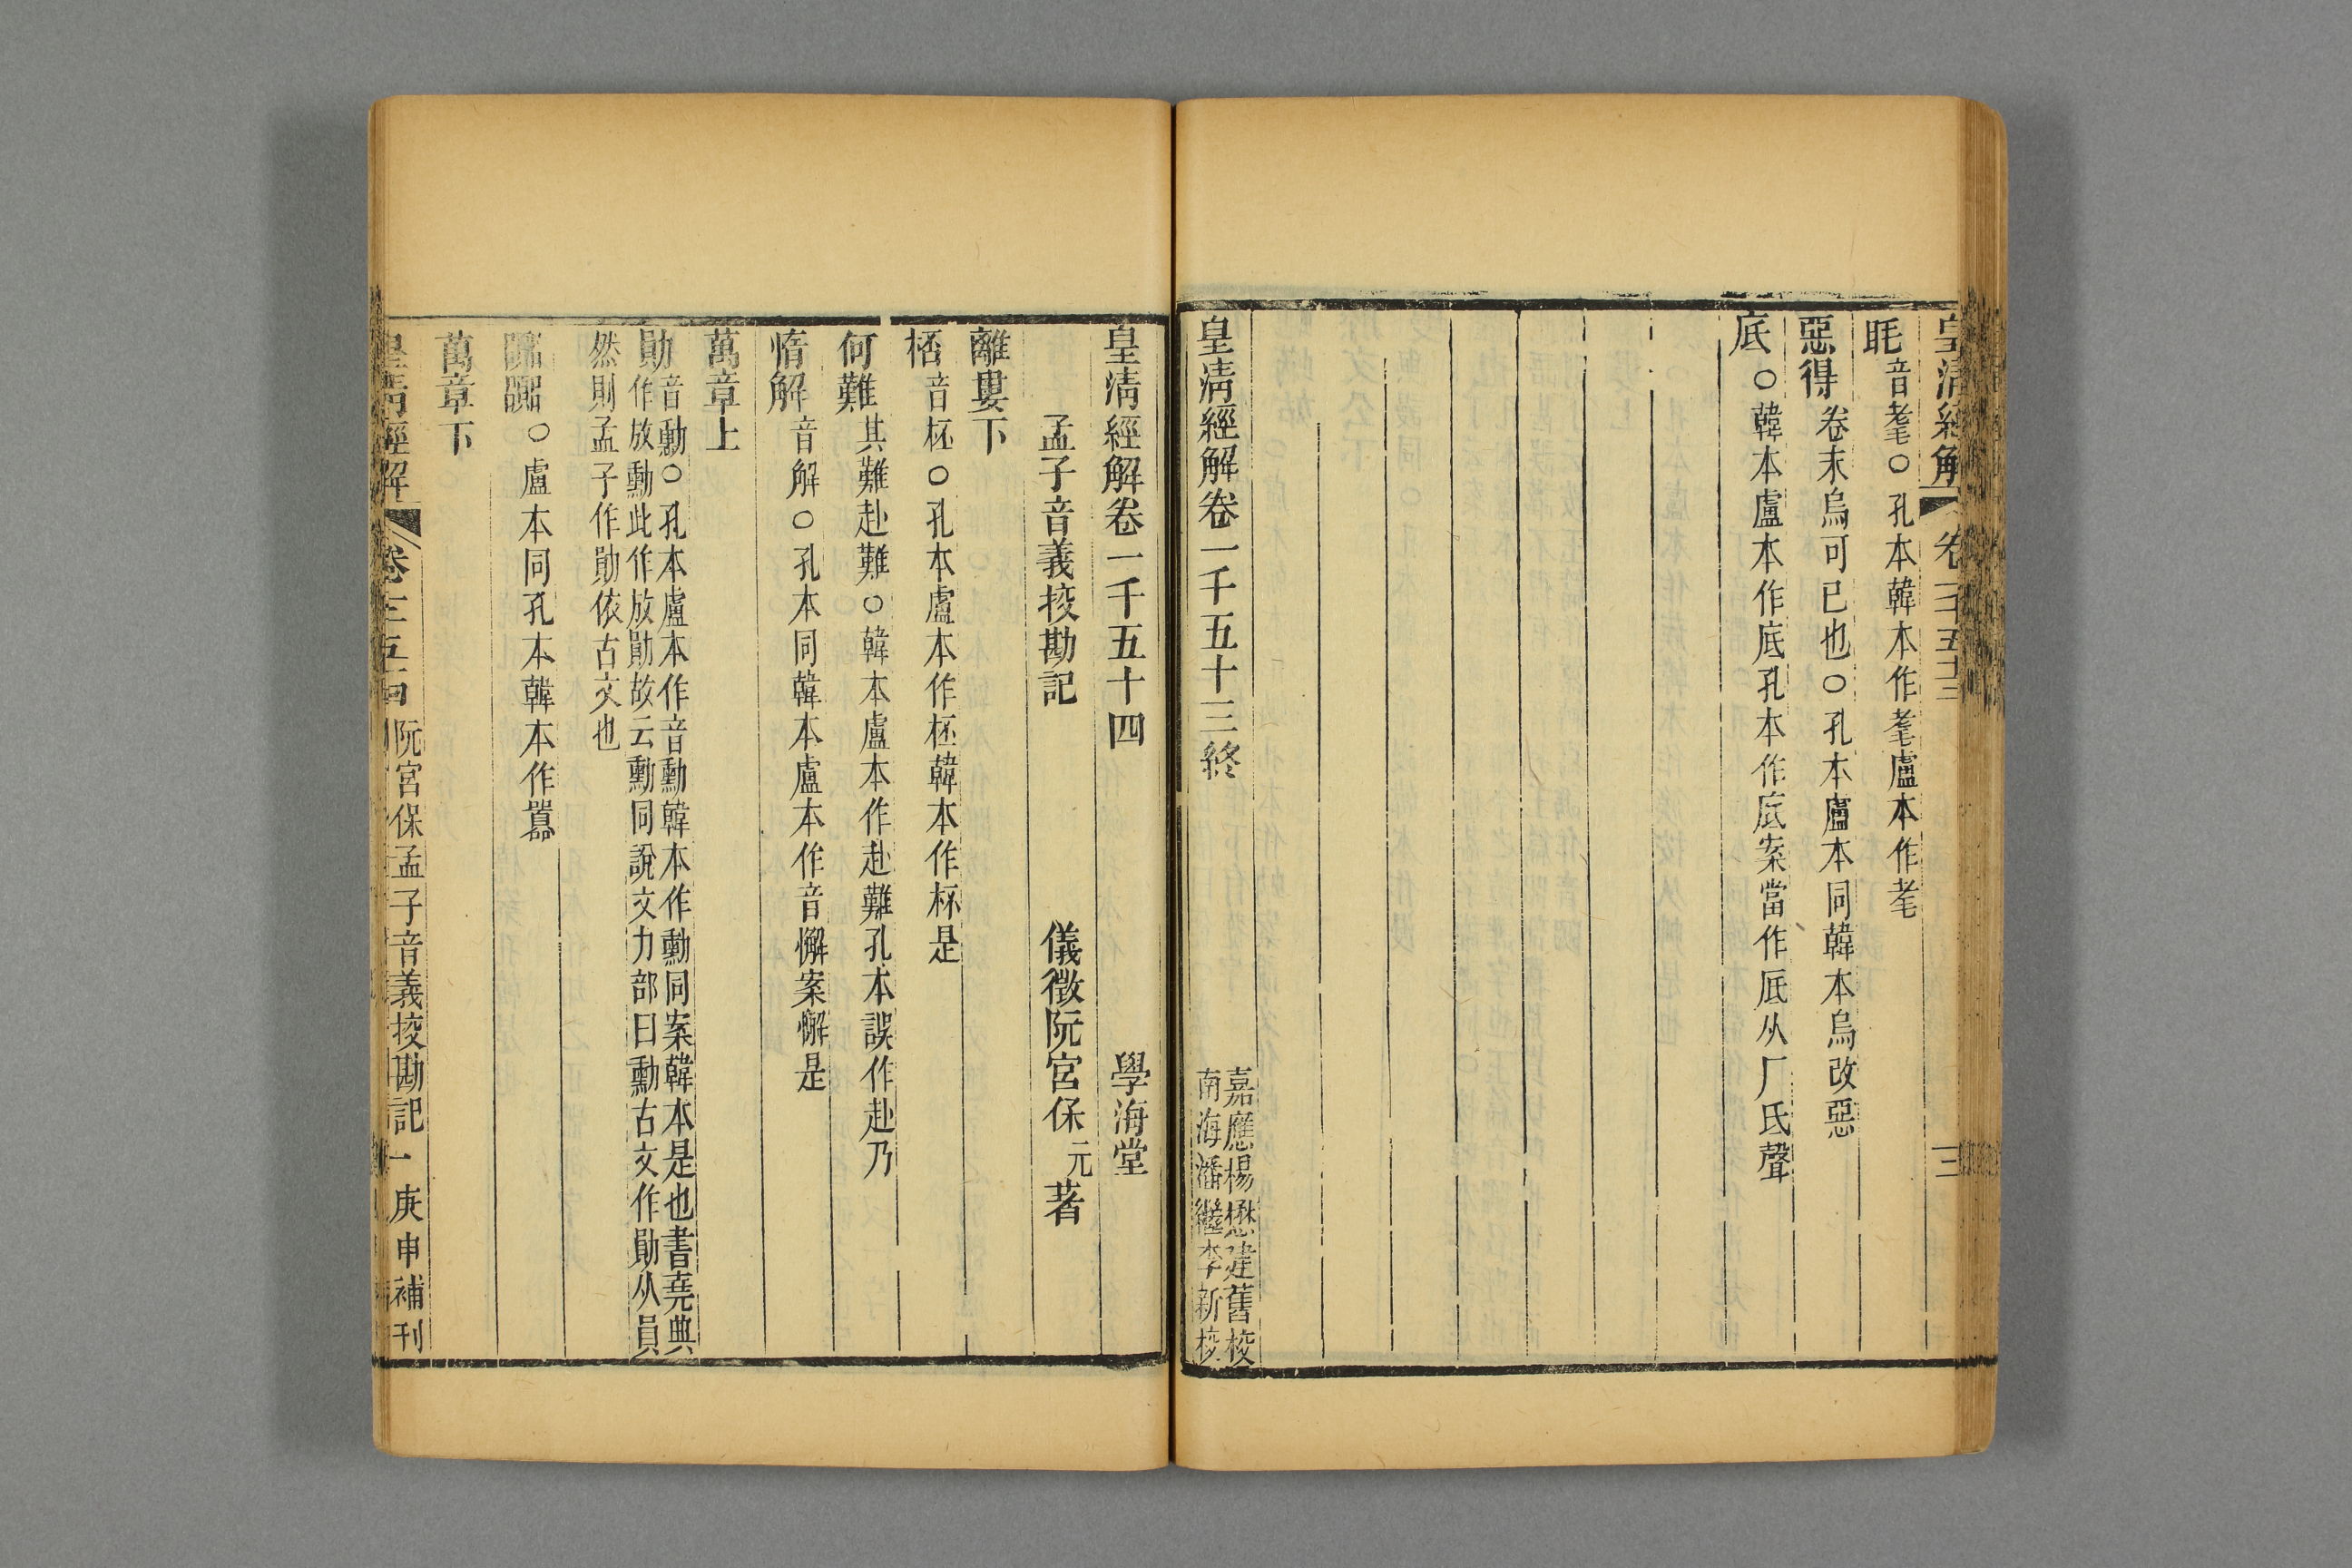 皇清經解 卷一千五十三 三
眊音耄○孔本韓本作耄盧本作耄
惡得卷末烏可已也○孔本盧本同韓本烏改惡
底○韓本盧本作底孔本作底案當作厎从厂氐聲
皇清經解卷一千五十三終
嘉應楊懋建舊校
南海潘繼李新校
皇清經解卷一千五十四 學海堂
孟子音義挍勘記 儀徵阮宮保元著
離婁下
桮音柸○孔本盧本作柸韓本作杯是
何難其難赴難○韓本盧本作赴難孔本誤作赴乃
惰解音解○孔本同韓本盧本作音懈案懈是
萬章上
勛音勳○孔本盧本作音勳韓本作勳同案韓本是也書堯典
作放勳此作放勛故云勳同說文力部曰勳古文作勛从員
然則孟子作勛依古文也
○盧本同孔本韓本作嚚
萬章下
皇清經解 卷 阮宮保孟子音義挍勘記 一 庚申補刊